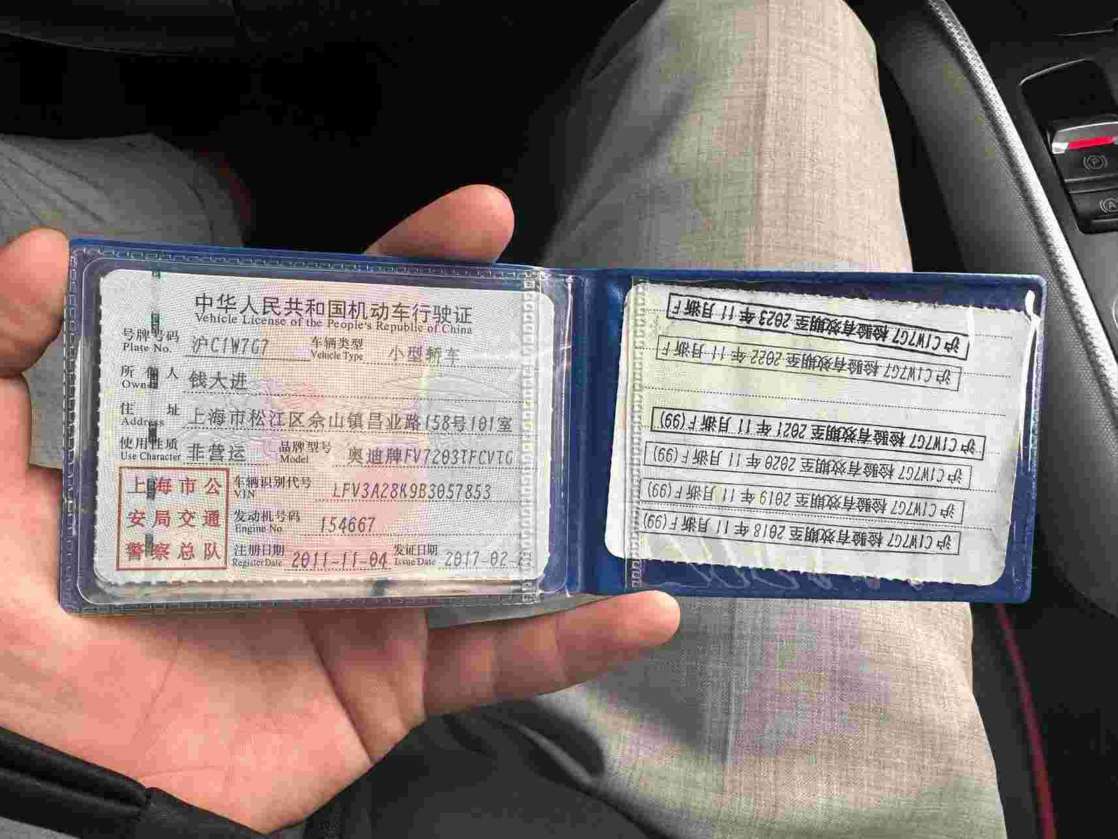 中华人民共和国机动车行驶证
Vehicle License of the People's Republic of China
号牌号码 沪C1W7G7 车辆类型 小型轿车
Plate No. Vehicle Type
所有人 钱大进
Owner
住址 上海市松江区佘山镇昌业路158号101室
Address
使用性质 非营运 品牌型号 奥迪牌FV7203TFCVTG
Use Character Model
上海市公
安局交通
警察总队
车辆识别代号 LFV3A28K9B3057853
VIN
发动机号码 154667
Engine No.
注册日期 2011-11-04 发证日期 2017-02-2
Register Date Issue Date
沪C1W7G7 检验有效期至 2018 年 11 月浙F(99)
沪C1W7G7 检验有效期至 2019 年 11 月浙F(99)
沪C1W7G7 检验有效期至 2020 年 11 月浙F(99)
沪C1W7G7 检验有效期至 2021 年 11 月浙F(99)
沪C1W7G7 检验有效期至 2022 年 11 月浙F
沪C1W7G7 检验有效期至 2023 年 11 月浙F